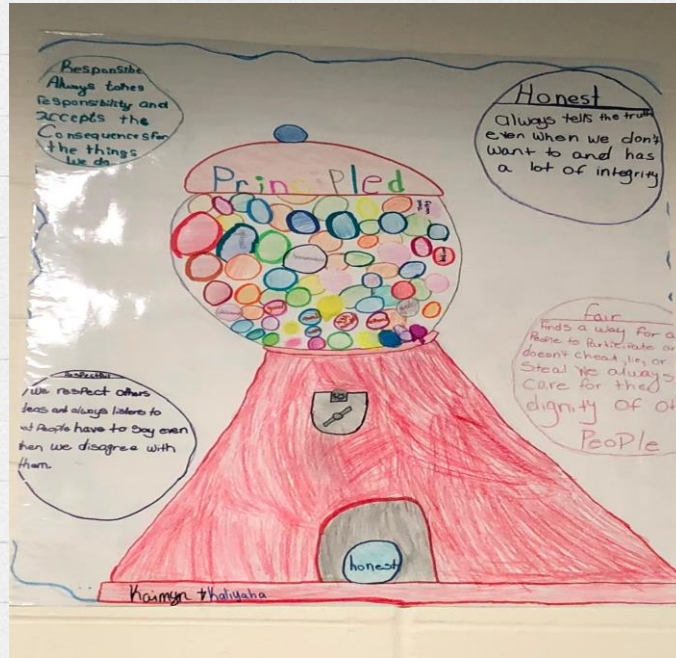 Responsible
Always takes
responsibility and
accepts the
Consequences for
the things
We do
Honest
always tells the truth
even when we don't
want to and has
a lot of integrity
Principled
fair
finds a way for a
People to Participate
doesn't cheat, lie, or
Steal We always
care for the
dignity of ot
PeoPle
respectful
we respect others
deas and always listens to
at People have to Say even
hen we disagree with
them.
honest
Kaimyn + Kaliyaha